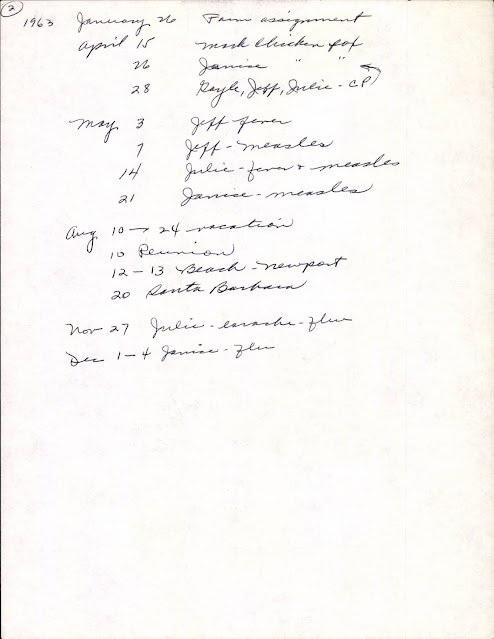 2
1963 January 26 Farm assignment
April 15 Mark Chicken pox
26 Janice " "
28 Gayle, Jeff, Julie - CP
May 3 Jeff fever
7 Jeff - measles
14 Julie - fever + measles
21 Janice - measles
Aug 10 → 24 vacation
10 Reunion
12 - 13 Beach - Newport
20 Santa Barbara
Nov 27 Julie - earache - flu
Dec 1 - 4 Janice - flu